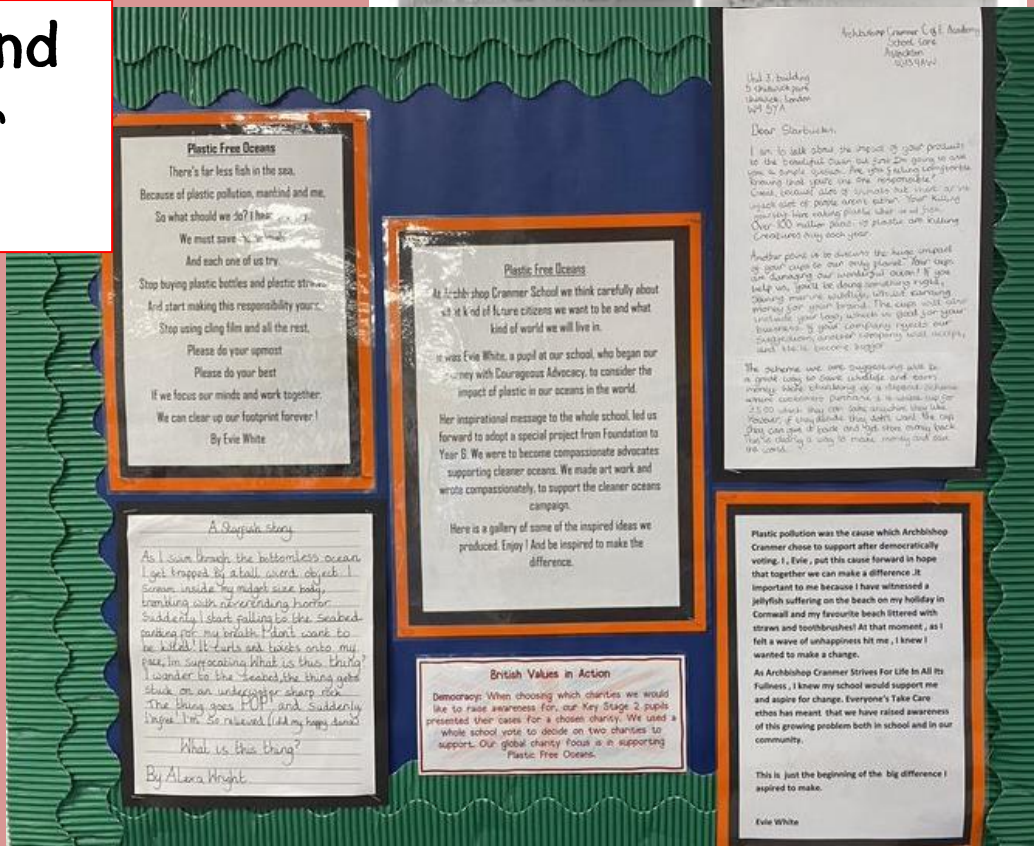 nd
Plastic Free Oceans
There's far less fish in the sea,
Because of plastic pollution, mankind and me,
So what should we do? I hear
We must save
And each one of us try.
Stop buying plastic bottles and plastic straws
And start making this responsibility yours,
Stop using cling film and all the rest,
Please do your upmost
Please do your best
If we focus our minds and work together,
We can clear up our footprint forever !
By Evie White
A Starfish Story
As I swim through the bottomless ocean
I get trapped by a tall weird object. I
scream inside my midget size body,
trambling with neverending horror
Suddenly I start falling to the seabed
panting for my breath. I don't want to
be killed! It curls and twists onto my
face, Im suffocating What is this thing?
I wander to the seabed, the thing gets
stuck on an underwater sharp rock
The thing goes POP and suddenly
I'm free. I'm so relieved I did my happy dance
What is this thing?
By Alexa Wright
Plastic Free Oceans
At Archbishop Cranmer School we think carefully about
what kind of future citizens we want to be and what
kind of world we will live in.
It was Evie White, a pupil at our school, who began our
journey with Courageous Advocacy, to consider the
impact of plastic in our oceans in the world.
Her inspirational message to the whole school, led us
forward to adopt a special project from Foundation to
Year 6. We were to become compassionate advocates
supporting cleaner oceans. We made art work and
wrote compassionately, to support the cleaner oceans
campaign.
Here is a gallery of some of the inspired ideas we
produced. Enjoy ! And be inspired to make the
difference.
British Values in Action
Democracy: When choosing which charities we would
like to raise awareness for, our Key Stage 2 pupils
presented their cases for a chosen charity. We used a
whole school vote to decide on two charities to
support. Our global charity focus is in supporting
Plastic Free Oceans.
Archbishop Cranmer C of E Academy
School Lane
Aslockton
Unit 3, building
5 Chiswick park
Chiswick, London
W4 5YA
Dear Starbucks,
I am to talk about the impact of your products
to the beautiful ocean but first I'm going to ask
you a simple question. Are you feeling comfortable
knowing that you're the one responsible?
Great, because alot of animals
alot of people aren't either. Your killing
yourself
Over 100 million
Creatures each year.
Another point is to discuss the huge impact
of your cups to our only planet. Your cups
are damaging our wonderful ocean! If you
help us, you'll be doing something right,
saving marine wildlife, whilst earning
money for your brand. The cups will also
include your logo, which is good for your
business. If your company rejects our
suggestion, another company will accept,
and she'll become bigger
The scheme we are suggesting will be
a great way to save wildlife and earn
money. We're thinking of a deposit scheme
where customers purchase a cup for
£5.00 which they can take anywhere they like
However, if they decide they don't want the cup
they can give it back and get there money back
This is clearly a way to make money and save
the world.
Plastic pollution was the cause which Archbishop
Cranmer chose to support after democratically
voting. I , Evie , put this cause forward in hope
that together we can make a difference .It
important to me because I have witnessed a
jellyfish suffering on the beach on my holiday in
Cornwall and my favourite beach littered with
straws and toothbrushes! At that moment , as I
felt a wave of unhappiness hit me , I knew I
wanted to make a change.
As Archbishop Cranmer Strives For Life In All Its
Fullness , I knew my school would support me
and aspire for change. Everyone's Take Care
ethos has meant that we have raised awareness
of this growing problem both in school and in our
community.
This is just the beginning of the big difference I
aspired to make.
Evie White